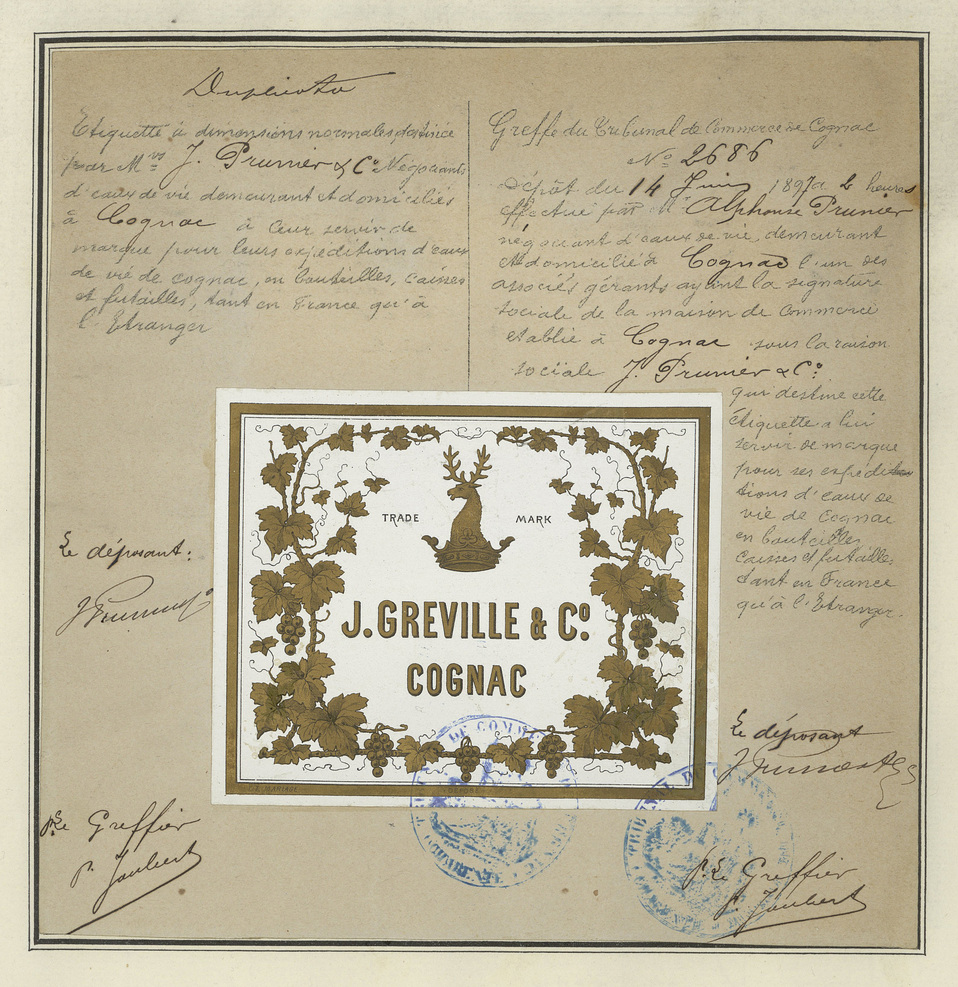 Duplicata
Etiquette à dimensions normales destinée
par Mrs J. Prunier & Co Négociants
d'eaux de vie demeurant et domiciliés
à Cognac à leur servir de
marque pour leurs expéditions d'eaux
de vie de cognac, en bouteilles, caisses
et futailles, tant en France qu'à
l'Etranger
Le déposant:
J Prunier & Co
Pr Le Greffier
P. Joubert
Greffe du Tribunal de Commerce de Cognac
No 2686
Dépôt du 14 Juin 1897 à 2 heures
effectué par Mr Alphonse Prunier
négociant d'eaux de vie, demeurant
et domicilié à Cognac l'un des
associés gérants ayant la signature
sociale de la maison de commerce
établie à Cognac sous la raison
sociale J. Prunier & Co:
qui destine cette
étiquette à lui
servir de marque
pour ses expédi
tions d'eaux de
vie de Cognac
en bouteilles
caisses et futailles,
tant en France
qu'à l'Etranger.
Le déposant
Pr Le Greffier
P. Joubert
TRADE MARK
J. GREVILLE & Co
COGNAC
DE COMME
TRIBUNAL DE COMMERCE